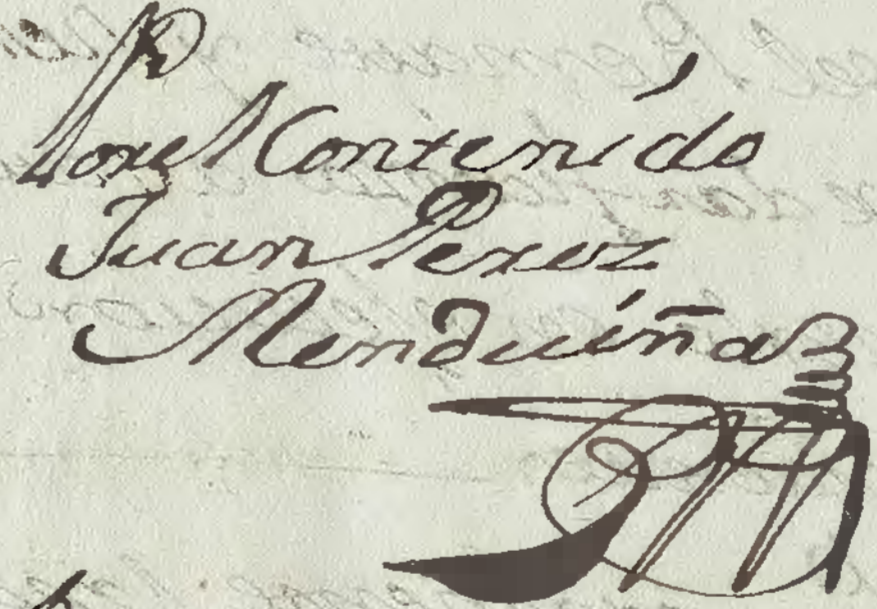 Por el Contenido
Juan Perez
Menduiña